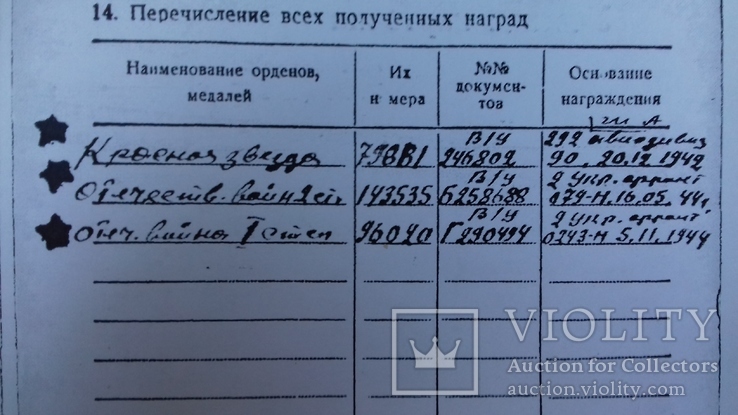 14. Перечисление всех полученных наград
Наименование орденов, медалей
Их номера
№№ документов
Основание награждения
В/У 292 авиодивиз
Красная звезда 79881 246802 90. 20.12.1942
В/У 2 укр. фронт
Отечеств. война 2 ст 143535 Б258688 079-Н. 16.05.44г
В/У 2 укр. фронт
Отеч. война I степ 96020 Г290494 0243-Н 5.11.1944
VIOLITY
Auction for Collectors
auction.violity.com